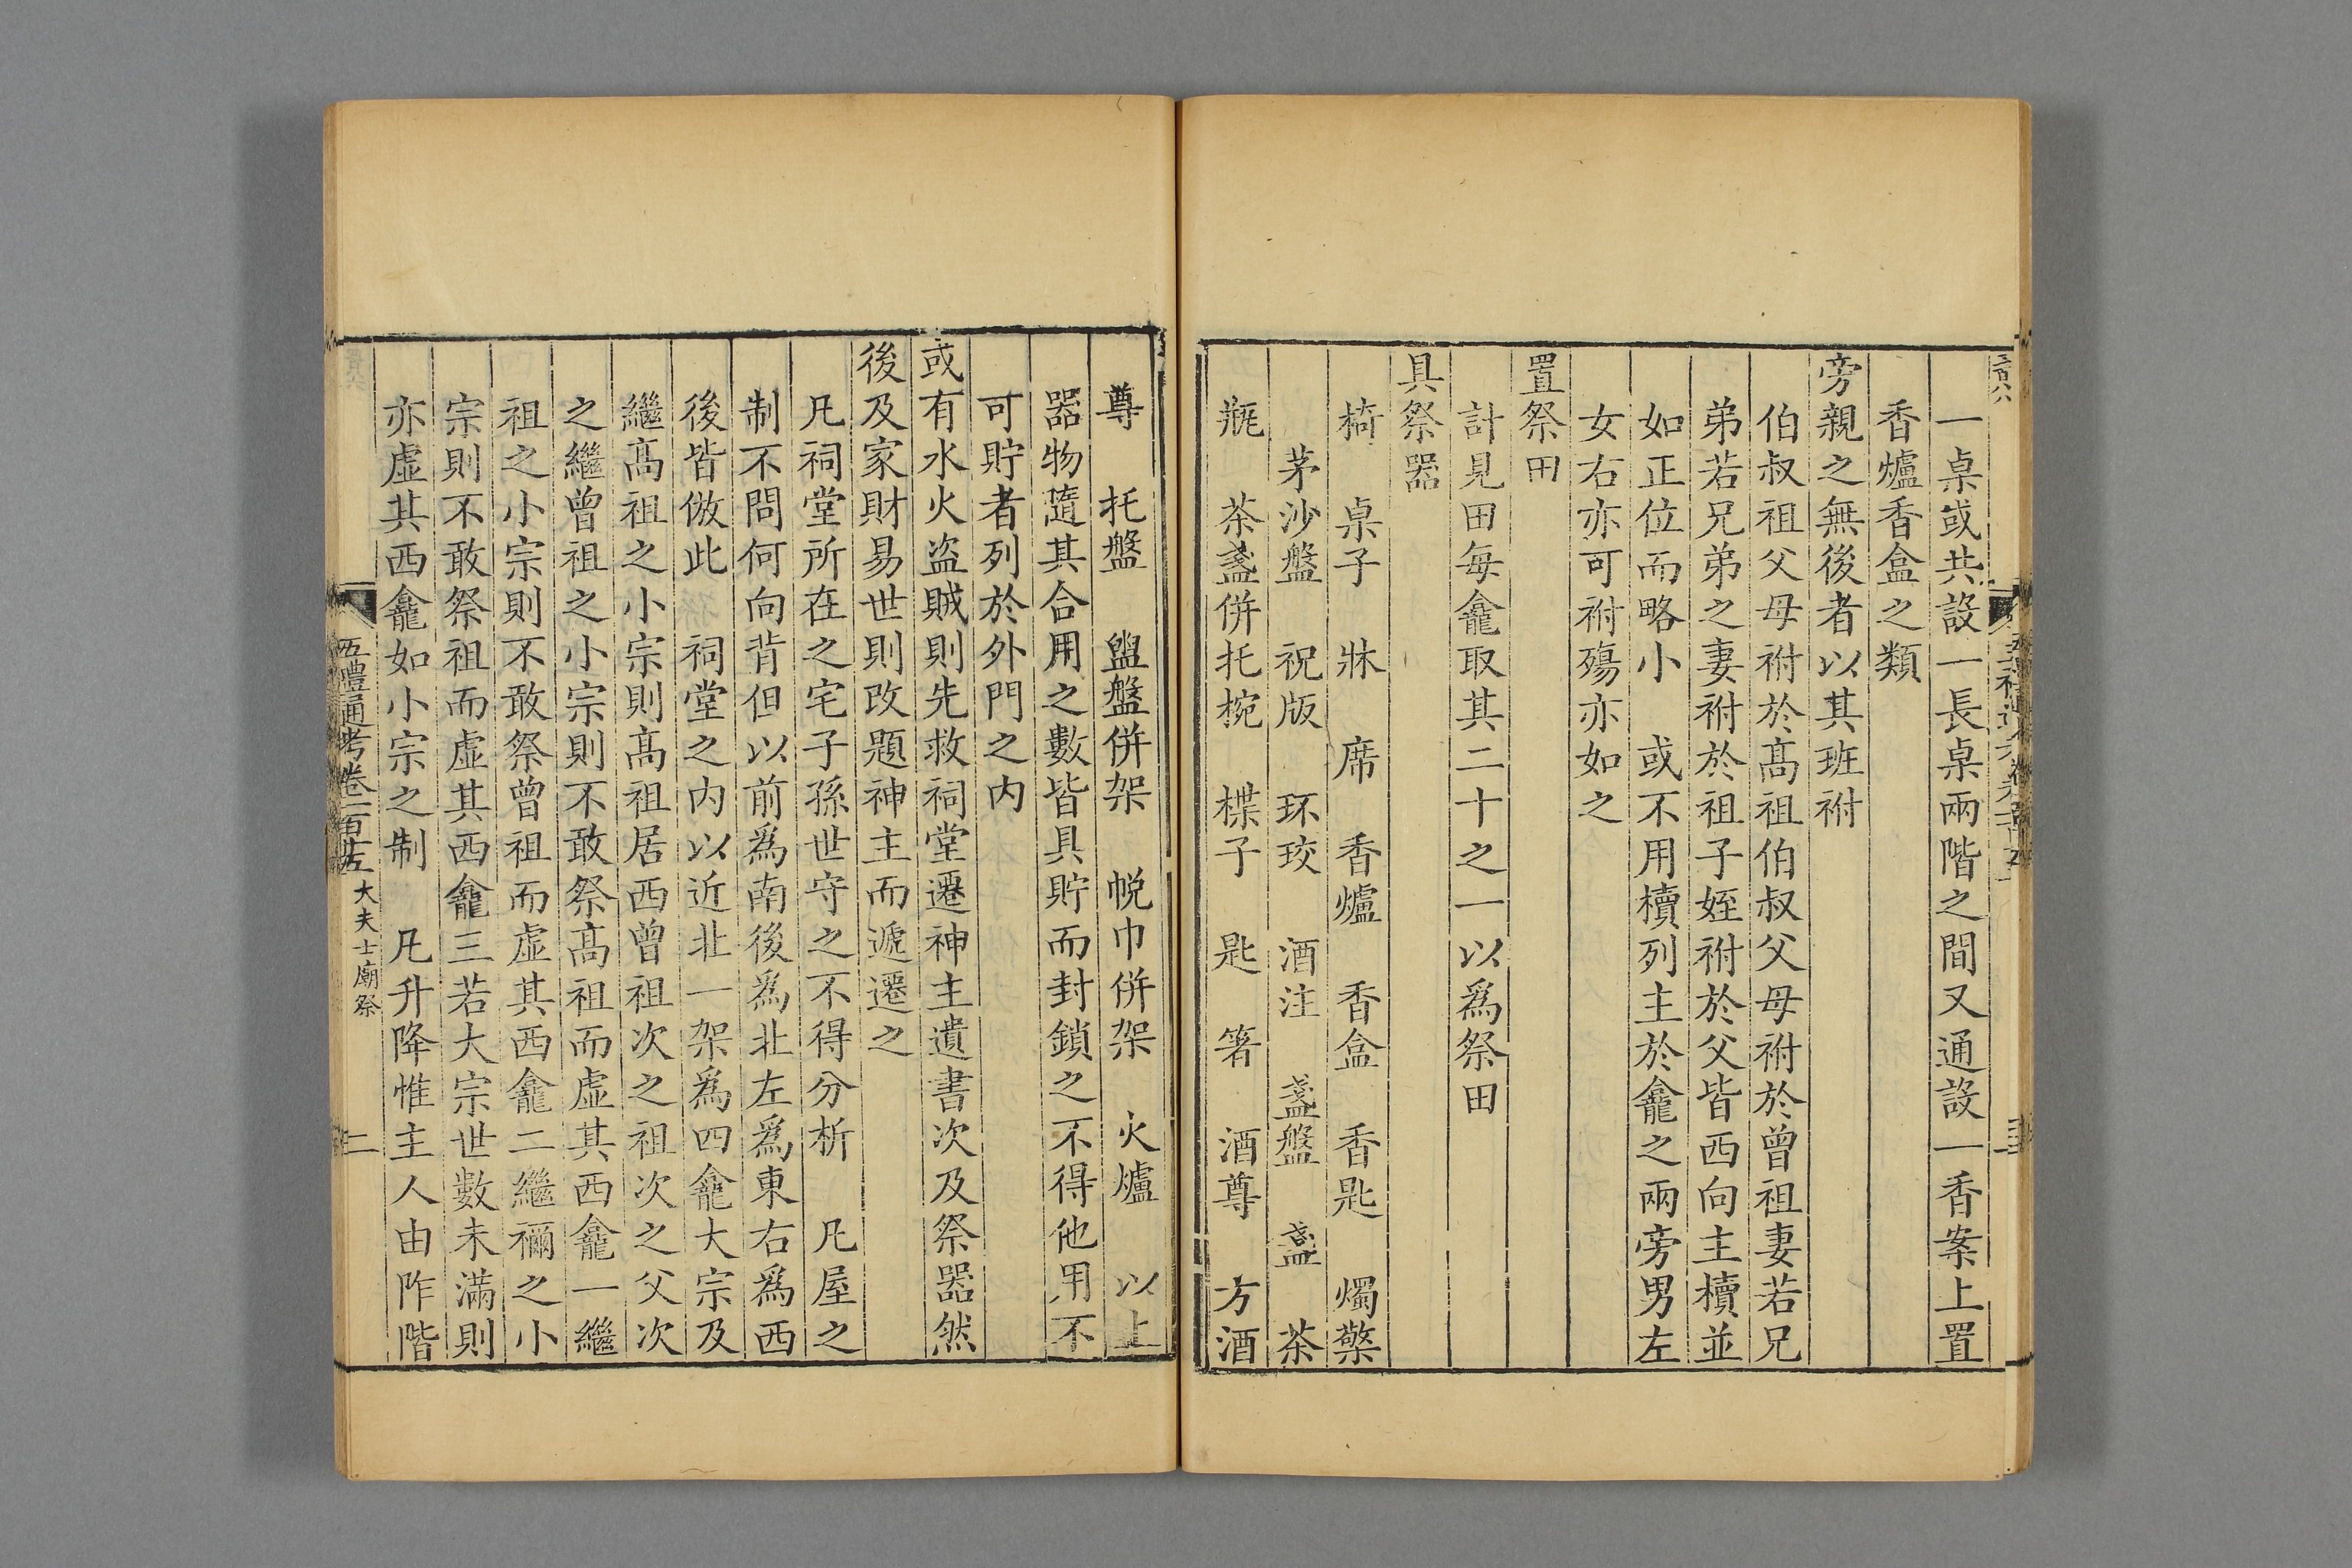 一桌或共設一長桌兩階之間又通設一香案上置
香爐香盒之類
旁親之無後者以其班祔
伯叔祖父母祔於髙祖伯叔父母祔於曾祖妻若兄
弟若兄弟之妻祔於祖子姪祔於父皆西向主櫝並
如正位而略小　或不用櫝列主於龕之兩旁男左
女右亦可祔殤亦如之
置祭田
計見田每龕取其二十之一以為祭田
具祭器
椅　桌子　牀　席　香爐　香盒　香匙　燭檠
茅沙盤　祝版　环珓　酒注　盞盤　盞　茶
瓶　茶盞併托椀　楪子　匙　箸　酒尊　方酒
尊　托盤　盥盤併架　帨巾併架　火爐　以上
器物隨其合用之數皆具貯而封鎖之不得他用不
可貯者列於外門之内
或有水火盗賊則先救祠堂遷神主遺書次及祭器然
後及家財易世則改題神主而遞遷之
凡祠堂所在之宅子孫世守之不得分析　凡屋之
制不問何向背但以前為南後為北左為東右為西
後皆倣此　祠堂之内以近北一架為四龕大宗及
繼髙祖之小宗則髙祖居西曾祖次之祖次之父次
之繼曾祖之小宗則不敢祭髙祖而虚其西龕一繼
祖之小宗則不敢祭曾祖而虚其西龕二繼禰之小
宗則不敢祭祖而虚其西龕三若大宗世數未滿則
亦虚其西龕如小宗之制　凡升降惟主人由阼階
五禮通考卷一百十五　大夫士廟祭　二